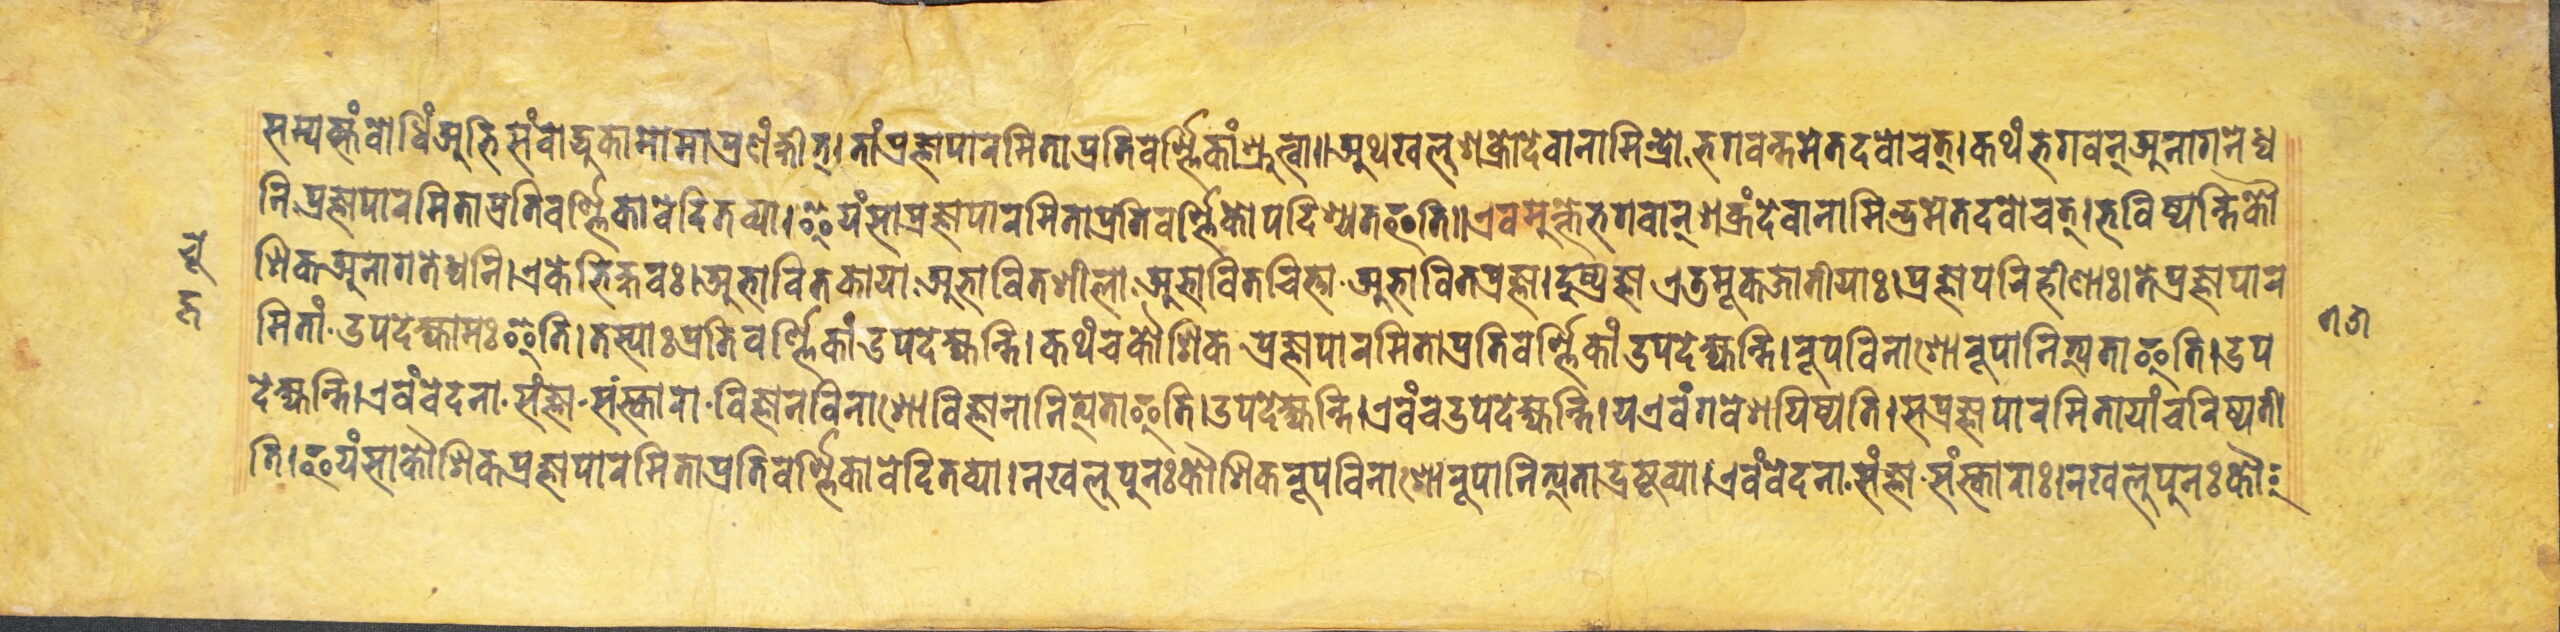 सम्यक्संबोधिं अभिसंबोद्धुकामो मा प्रणंक्षीत्। तां प्रज्ञापारमिताप्रतिवर्ण्णिकां श्रुत्वा॥ अथ खलु शक्रो देवानामिन्द्रो भगवन्तमेतदवोचत्। कथं भगवन् अनागतेध्व
नि प्रज्ञापारमिताप्रतिवर्ण्णिका वेदितव्या। इयं सा प्रज्ञापारमिताप्रतिवर्ण्णिकोपदिश्यत इति॥ एवमुक्ते भगवान् शक्रं देवानामिन्द्रमेतदवोचत्। भविष्यन्ति कौ
शिक अनागतेध्वनि। एके भिक्षवः। अभावितकाया अभावितशीला अभावितचित्ता अभावितप्रज्ञा। दुष्प्रज्ञा एडमूकजातीयाः। प्रज्ञापरिहीणाः। ते प्रज्ञापार
मितां उपदेक्ष्यामः इति। तस्याः प्रतिवर्ण्णिकां उपदेक्ष्यन्ति। कथं च कौशिक प्रज्ञापारमिताप्रतिवर्ण्णिकां उपदेक्ष्यन्ति। रूपविनाशो रूपानित्यता इति। उप
देक्ष्यन्ति। एवं वेदना संज्ञा संस्कारा विज्ञानविनाशो विज्ञानानित्यता इति। उपदेक्ष्यन्ति। एवं च उपदेक्ष्यन्ति। य एवं गवेशयिष्यति। स प्रज्ञापारमितायां चरिष्यती
ति। इयं सा कौशिक प्रज्ञापारमिताप्रतिवर्ण्णिका वेदितव्या। न खलु पुनः कौशिक रूपविनाशो रूपानित्यता द्रष्टव्या। एवं वेदना संज्ञा संस्काराः। न खलु पुनः कौ